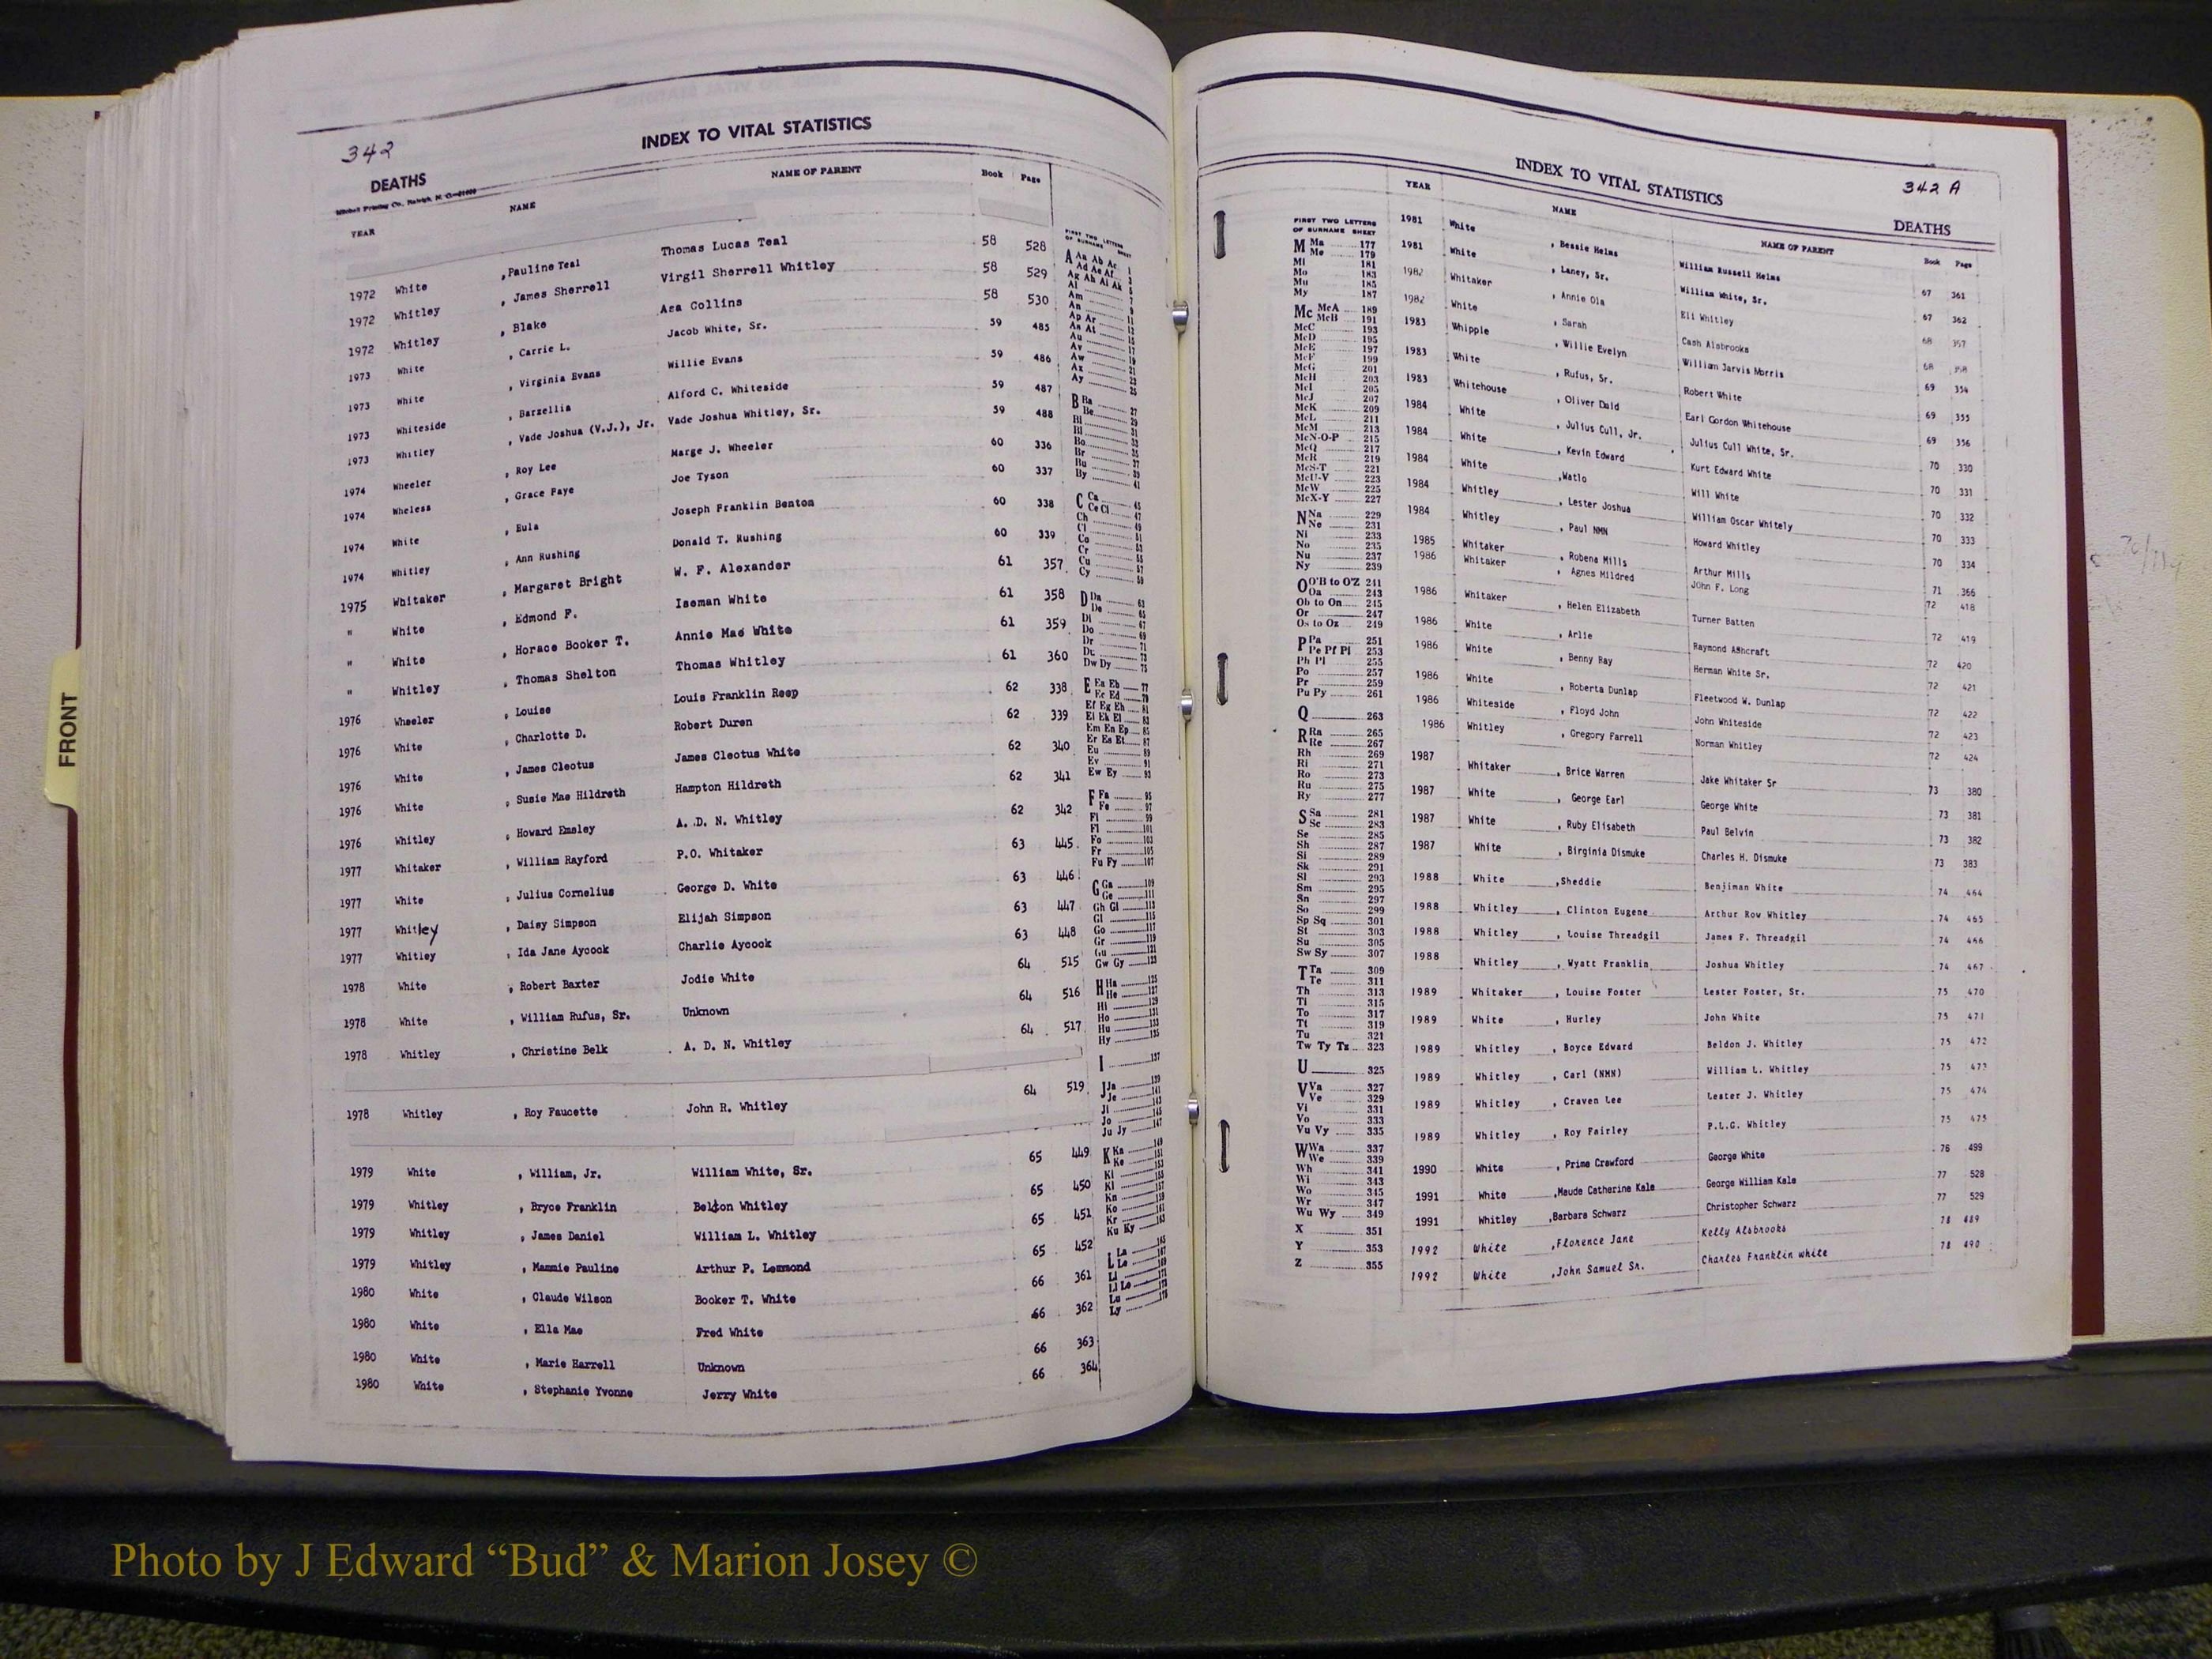 342
INDEX TO VITAL STATISTICS
DEATHS
Mitchell Printing Co., Raleigh, N. C.
YEAR NAME NAME OF PARENT Book Page
1972 White , Pauline Teal Thomas Lucas Teal 58 528
1972 Whitley , James Sherrell Virgil Sherrell Whitley 58 529
1972 Whitley , Blake Asa Collins 58 530
1973 White , Carrie L. Jacob White, Sr. 59 485
1973 White , Virginia Evans Willie Evans 59 486
1973 Whiteside , Barzellia Alford C. Whiteside 59 487
1973 Whitley , Vade Joshua (V.J.), Jr. Vade Joshua Whitley, Sr. 59 488
1974 Wheeler , Roy Lee Marge J. Wheeler 60 336
1974 Wheless , Grace Faye Joe Tyson 60 337
1974 White , Eula Joseph Franklin Benton 60 338
1974 Whitley , Ann Rushing Donald T. Rushing 60 339
1975 Whitaker , Margaret Bright W. F. Alexander 61 357
" White , Edmond F. Iseman White 61 358
" White , Horace Booker T. Annie Mae White 61 359
" Whitley , Thomas Shelton Thomas Whitley 61 360
1976 Wheeler , Louise Louis Franklin Reep 62 338
1976 White , Charlotte D. Robert Duren 62 339
1976 White , James Cleotus James Cleotus White 62 340
1976 White , Susie Mae Hildreth Hampton Hildreth 62 341
1976 Whitley , Howard Emsley A. D. N. Whitley 62 342
1977 Whitaker , William Rayford P.O. Whitaker 63 445
1977 White , Julius Cornelius George D. White 63 446
1977 Whitley , Daisy Simpson Elijah Simpson 63 447
1977 Whitley , Ida Jane Aycock Charlie Aycock 63 448
1978 White , Robert Baxter Jodie White 64 515
1978 White , William Rufus, Sr. Unknown 64 516
1978 Whitley , Christine Belk A. D. N. Whitley 64 517
1978 Whitley , Roy Faucette John R. Whitley 64 519
1979 White , William, Jr. William White, Sr. 65 449
1979 Whitley , Bryce Franklin Belton Whitley 65 450
1979 Whitley , James Daniel William L. Whitley 65 451
1979 Whitley , Mammie Pauline Arthur P. Lemmond 65 452
1980 White , Claude Wilson Booker T. White 66 361
1980 White , Ella Mae Fred White 66 362
1980 White , Marie Harrell Unknown 66 363
1980 White , Stephanie Yvonne Jerry White 66 364
FIRST TWO LETTERS
OF SURNAME SHEET
A Aa Ab Ac 1
Ad Ae Af 3
Ag Ah Ai Ak 5
Al 7
Am 9
An 11
Ap Ar 13
As At 15
Au 17
Av 19
Aw 21
Ax 23
Ay 25
B Ba 27
Be 29
Bi 31
Bl 33
Bo 35
Br 37
Bu 39
By 41
C Ca 45
Ce Ci 47
Ch 49
Cl 51
Co 53
Cr 55
Cu 57
Cy 59
D Da 63
De 65
Di 67
Do 69
Dr 71
Du 73
Dw Dy 75
E Ea Eb 77
Ec Ed 79
Ef Eg Eh 81
Ei Ek El 83
Em En Ep 85
Er Es Et 87
Eu 89
Ev 91
Ew Ey 93
F Fa 95
Fe 97
Fi 99
Fl 101
Fo 103
Fr 105
Fu Fy 107
G Ga 109
Ge 111
Gh Gi 113
Gl 115
Go 117
Gr 119
Gu 121
Gw Gy 123
H Ha 125
He 127
Hi 129
Ho 131
Hu 133
Hy 135
I 137
J Ja 139
Je 141
Ji 143
Jo 145
Ju Jy 147
K Ka 149
Ke 151
Ki 153
Kl 155
Kn 157
Ko 159
Kr 161
Ku Ky 163
L La 165
Le 167
Li 169
Ll Lo 171
Lu 173
Ly 175
INDEX TO VITAL STATISTICS
342 A
DEATHS
YEAR NAME NAME OF PARENT Book Page
FIRST TWO LETTERS
OF SURNAME SHEET
M Ma 177
Me 179
Mi 181
Mo 183
Mu 185
My 187
Mc McA 189
McB 191
McC 193
McD 195
McE 197
McF 199
McG 201
McH 203
McI 205
McJ 207
McK 209
McL 211
McM 213
McN-O-P 215
McQ 217
McR 219
McS-T 221
McU-V 223
McW 225
McX-Y 227
N Na 229
Ne 231
Ni 233
No 235
Nu 237
Ny 239
O O'B to O'Z 241
Oa 243
Ob to On 245
Or 247
Os to Oz 249
P Pa 251
Pe Pf Pi 253
Ph Pl 255
Po 257
Pr 259
Pu Py 261
Q 263
R Ra 265
Re 267
Rh 269
Ri 271
Ro 273
Ru 275
Ry 277
S Sa 281
Sc 283
Se 285
Sh 287
Si 289
Sk 291
Sl 293
Sm 295
Sn 297
So 299
Sp Sq 301
St 303
Su 305
Sw Sy 307
T Ta 309
Te 311
Th 313
Ti 315
To 317
Tr 319
Tu 321
Tw Ty Tz 323
U 325
V Va 327
Ve 329
Vi 331
Vo 333
Vu Vy 335
W Wa 337
We 339
Wh 341
Wi 343
Wo 345
Wr 347
Wu Wy 349
X 351
Y 353
Z 355
1981 White , Bessie Helms William Russell Helms 67 361
1981 White , Laney, Sr. William White, Sr. 67 362
1982 Whitaker , Annie Ola Eli Whitley 68 357
1982 White , Sarah Cash Alsbrooks 68 358
1983 Whipple , Willie Evelyn William Jarvis Morris 69 354
1983 White , Rufus, Sr. Robert White 69 355
1983 Whitehouse , Oliver Dald Earl Gordon Whitehouse 69 356
1984 White , Julius Cull, Jr. Julius Cull White, Sr. 70 330
1984 White , Kevin Edward Kurt Edward White 70 331
1984 White , Watlo Will White 70 332
1984 Whitley , Lester Joshua William Oscar Whitely 70 333
1984 Whitley , Paul NMN Howard Whitley 70 334
1985 Whitaker , Robena Mills Arthur Mills 71 366
1986 Whitaker , Agnes Mildred John F. Long 72 418
1986 Whitaker , Helen Elizabeth Turner Batten 72 419
1986 White , Arlie Raymond Ashcraft 72 420
1986 White , Benny Ray Herman White Sr. 72 421
1986 White , Roberta Dunlap Fleetwood W. Dunlap 72 422
1986 Whiteside , Floyd John John Whiteside 72 423
1986 Whitley , Gregory Farrell Norman Whitley 72 424
1987 Whitaker , Brice Warren Jake Whitaker Sr 73 380
1987 White , George Earl George White 73 381
1987 White , Ruby Elisabeth Paul Belvin 73 382
1987 White , Birginia Dismuke Charles H. Dismuke 73 383
1988 White , Sheddie Benjiman White 74 464
1988 Whitley , Clinton Eugene Arthur Row Whitley 74 465
1988 Whitley , Louise Threadgil James F. Threadgil 74 466
1988 Whitley , Wyatt Franklin Joshua Whitley 74 467
1989 Whitaker , Louise Foster Lester Foster, Sr. 75 470
1989 White , Hurley John White 75 471
1989 Whitley , Boyce Edward Beldon J. Whitley 75 472
1989 Whitley , Carl (NMN) William L. Whitley 75 473
1989 Whitley , Craven Lee Lester J. Whitley 75 474
1989 Whitley , Roy Fairley P.L.G. Whitley 75 475
1990 White , Prime Crawford George White 76 499
1991 White , Maude Catherine Kale George William Kale 77 528
1991 Whitley , Barbara Schwarz Christopher Schwarz 77 529
1992 White , Florence Jane Kelly Alsbrooks 78 489
1992 White , John Samuel Sr. Charles Franklin white 78 490
FRONT
Photo by J Edward “Bud” & Marion Josey ©